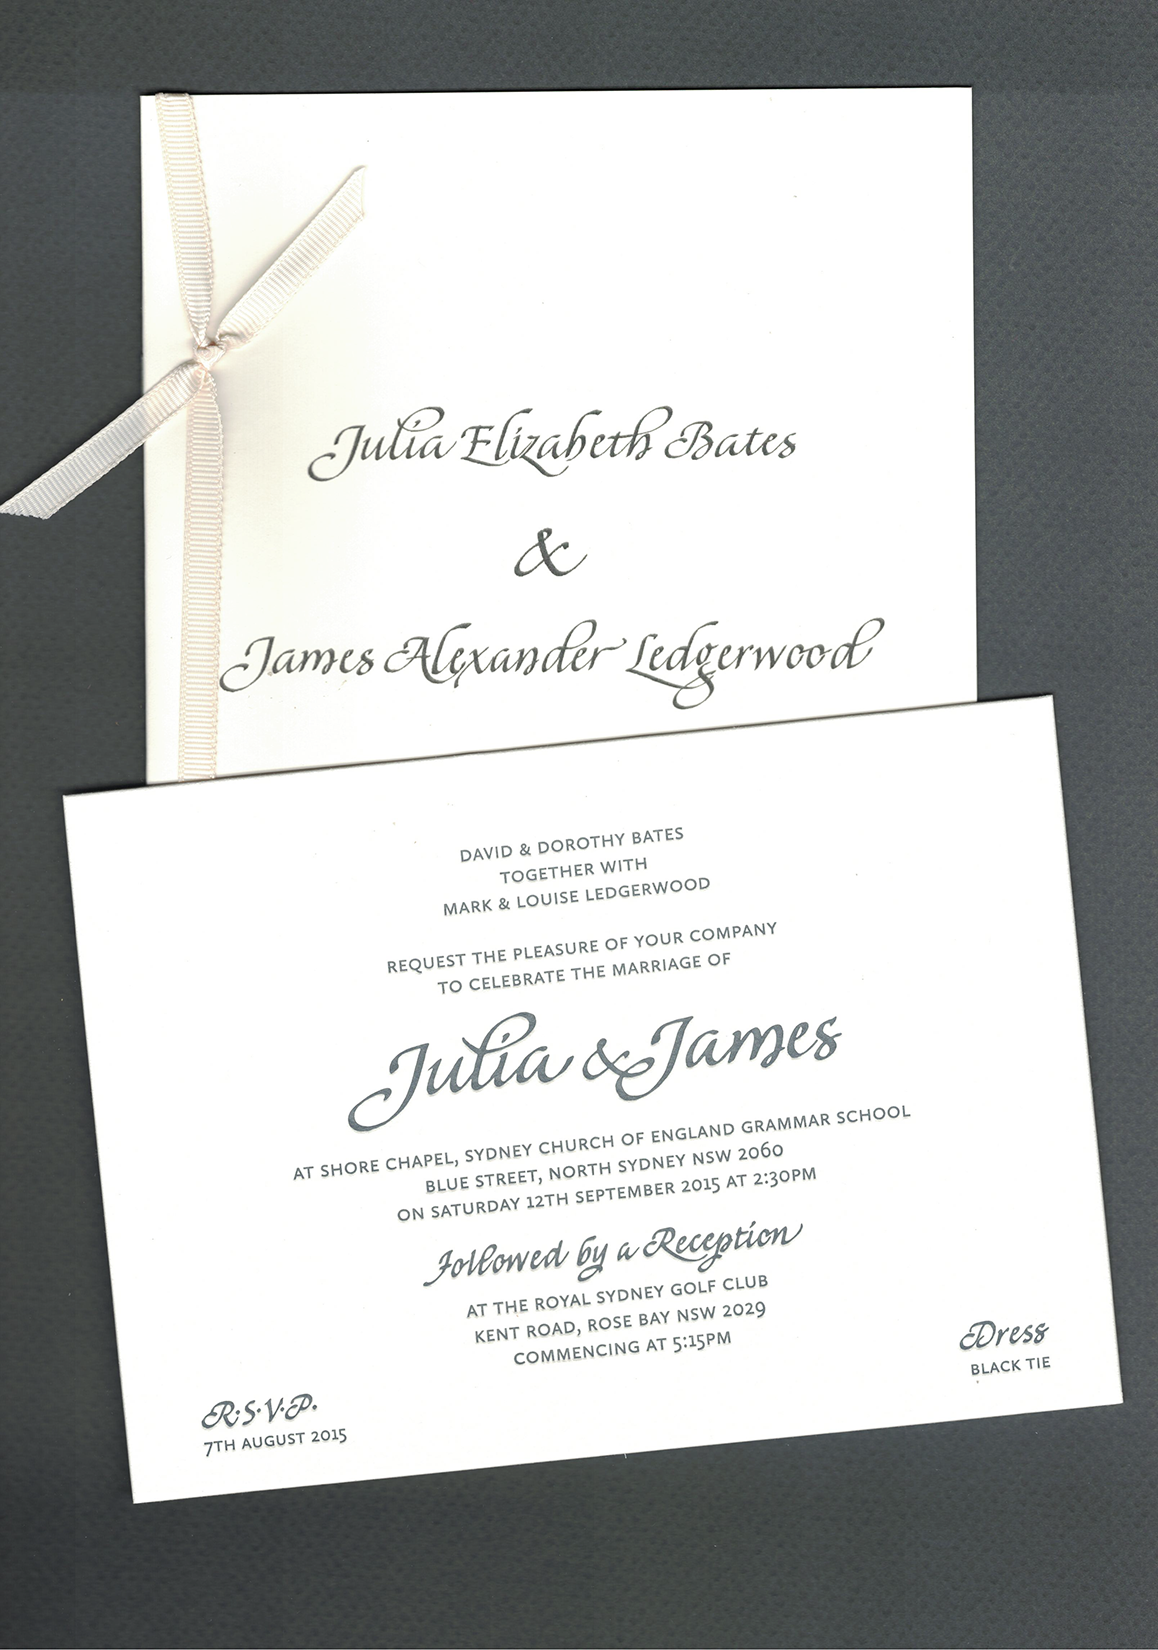 Julia Elizabeth Bates
&
James Alexander Ledgerwood
DAVID & DOROTHY BATES
TOGETHER WITH
MARK & LOUISE LEDGERWOOD
REQUEST THE PLEASURE OF YOUR COMPANY
TO CELEBRATE THE MARRIAGE OF
Julia & James
AT SHORE CHAPEL, SYDNEY CHURCH OF ENGLAND GRAMMAR SCHOOL
BLUE STREET, NORTH SYDNEY NSW 2060
ON SATURDAY 12TH SEPTEMBER 2015 AT 2:30PM
Followed by a Reception
AT THE ROYAL SYDNEY GOLF CLUB
KENT ROAD, ROSE BAY NSW 2029
COMMENCING AT 5:15PM
R·S·V·P.
7TH AUGUST 2015
Dress
BLACK TIE